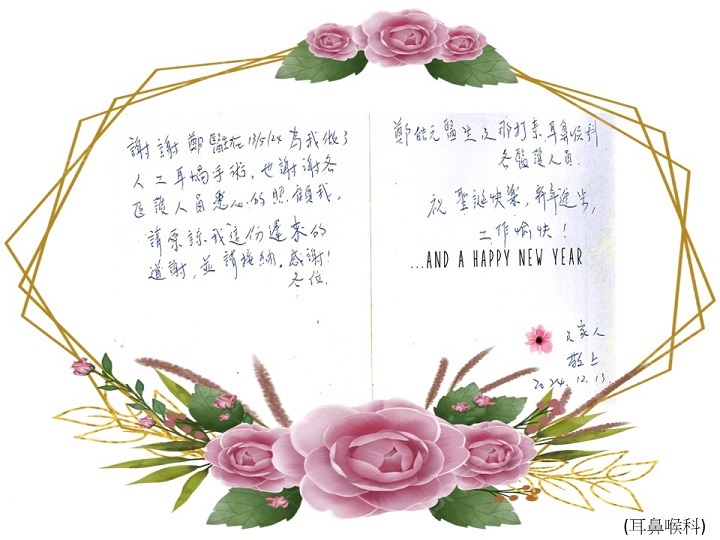 謝謝鄭醫生在13/5/24為我做了
人工耳蝸手術,也謝謝各
醫護人員悉心的照顧我。
請原諒我這份遲來的
道謝,並請接納。感謝!
各位.
鄭 元醫生及那打素耳鼻喉科
各醫護人員.
祝 聖誕快樂,新年進步,
工作愉快!
...AND A HAPPY NEW YEAR
及家人
敬上
2024.12.13.
(耳鼻喉科)